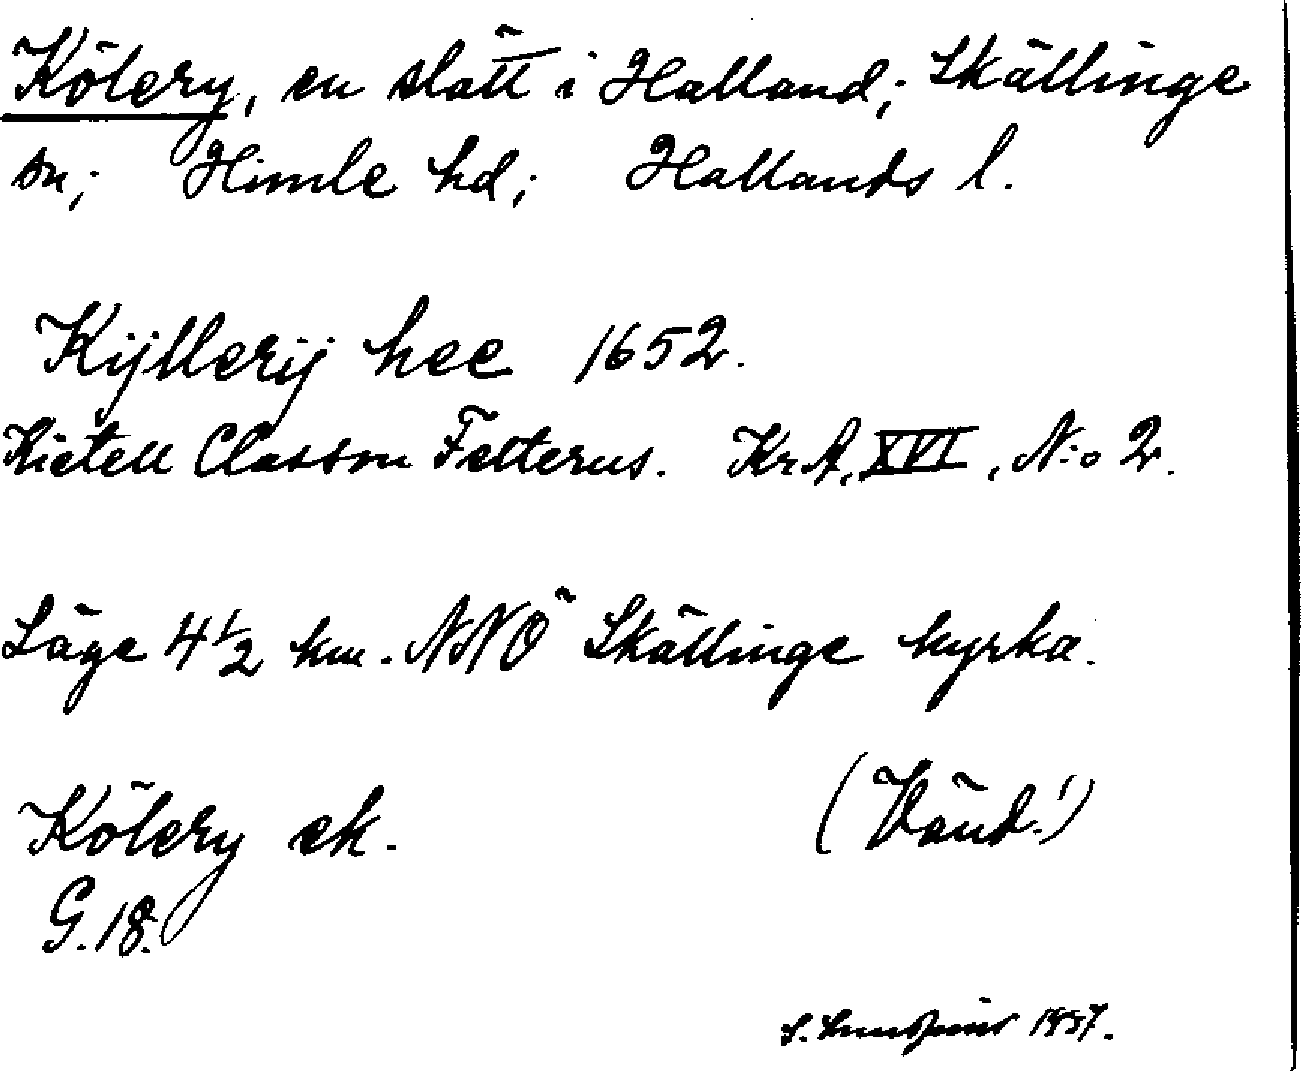 Kölery, en slätt i Halland; Skällinge
sn; Himle hd; Hallands l.
Kijllerij hee 1652.
Kietell Classon Felterus. Kr.A. XVI, N:o 2.
Läge 4 1/2 km. NNÖ Skällinge kyrka.
Kölery ek.
(Vänd!)
G.18.
S. 1937.